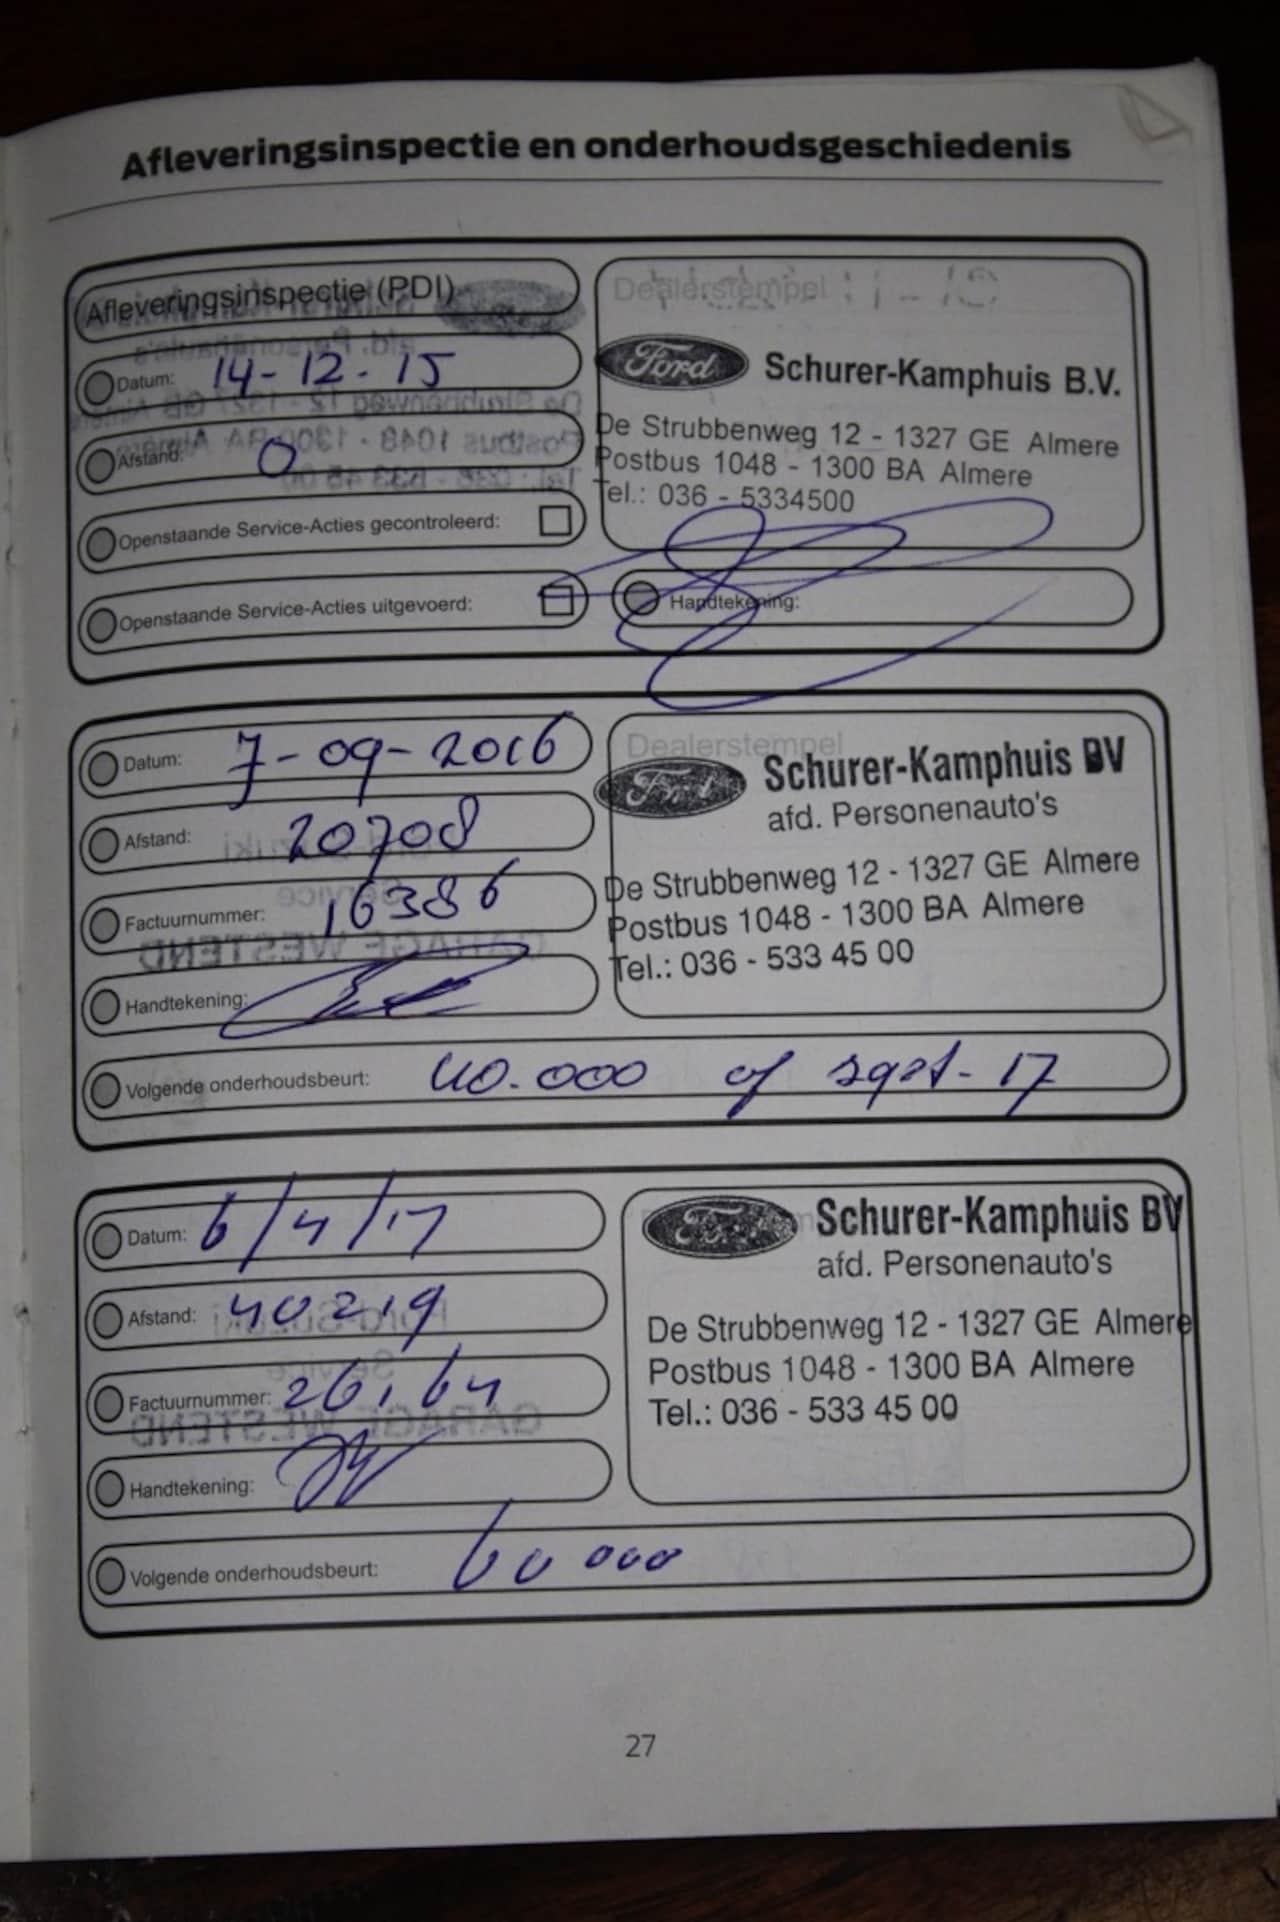 Afleveringsinspectie en onderhoudsgeschiedenis
Afleveringsinspectie (PDI)
Datum: 14-12-15
Afstand: 0
Openstaande Service-Acties gecontroleerd:
Openstaande Service-Acties uitgevoerd:
Dealerstempel
Ford Schurer-Kamphuis B.V.
De Strubbenweg 12 - 1327 GE Almere
Postbus 1048 - 1300 BA Almere
Tel.: 036 - 5334500
Handtekening:
Datum: 7-09-2016
Afstand: 20708
Factuurnummer: 16386
Handtekening:
Dealerstempel
Ford Schurer-Kamphuis BV
afd. Personenauto's
De Strubbenweg 12 - 1327 GE Almere
Postbus 1048 - 1300 BA Almere
Tel.: 036 - 533 45 00
Volgende onderhoudsbeurt: 40.000 of sept-17
Datum: 6/4/17
Afstand: 40219
Factuurnummer: 26164
Handtekening:
Ford Schurer-Kamphuis BV
afd. Personenauto's
De Strubbenweg 12 - 1327 GE Almere
Postbus 1048 - 1300 BA Almere
Tel.: 036 - 533 45 00
Volgende onderhoudsbeurt: 60 000
27